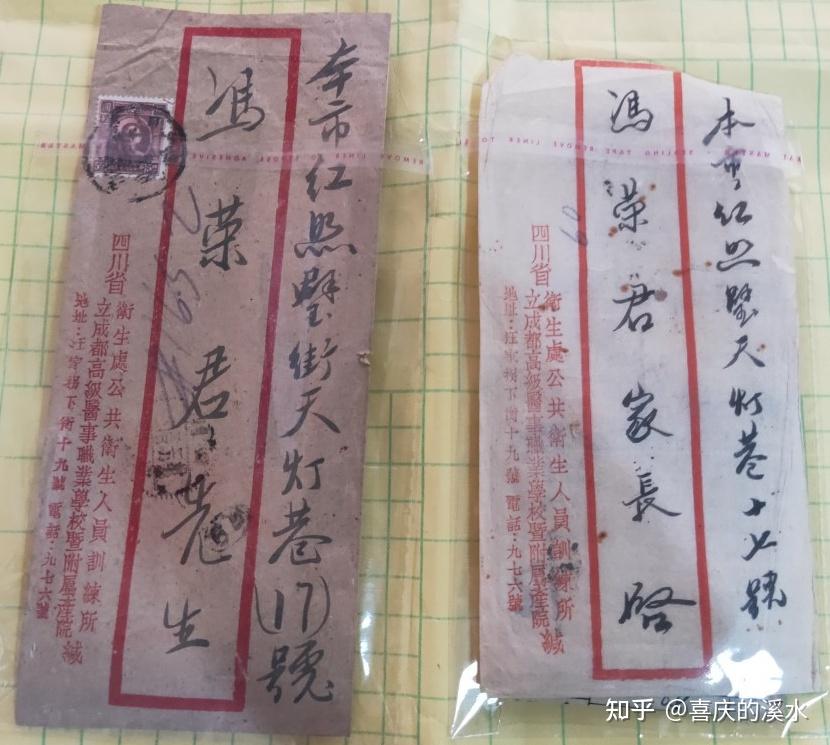 本市红照壁街天灯巷(17)號
冯荣君先生
四川省
衛生處公共衛生人員訓練所
立成都高級醫事職業學校暨附屬產院緘
地址：汪家拐下街十九號 電話：九七六號
本市红照壁天灯巷十七號
冯荣君家長啓
60
四川省
衛生處公共衛生人員訓練所
立成都高級醫事職業學校暨附屬產院緘
地址：汪家拐下街十九號 電話：九七六號
知乎 @喜庆的溪水